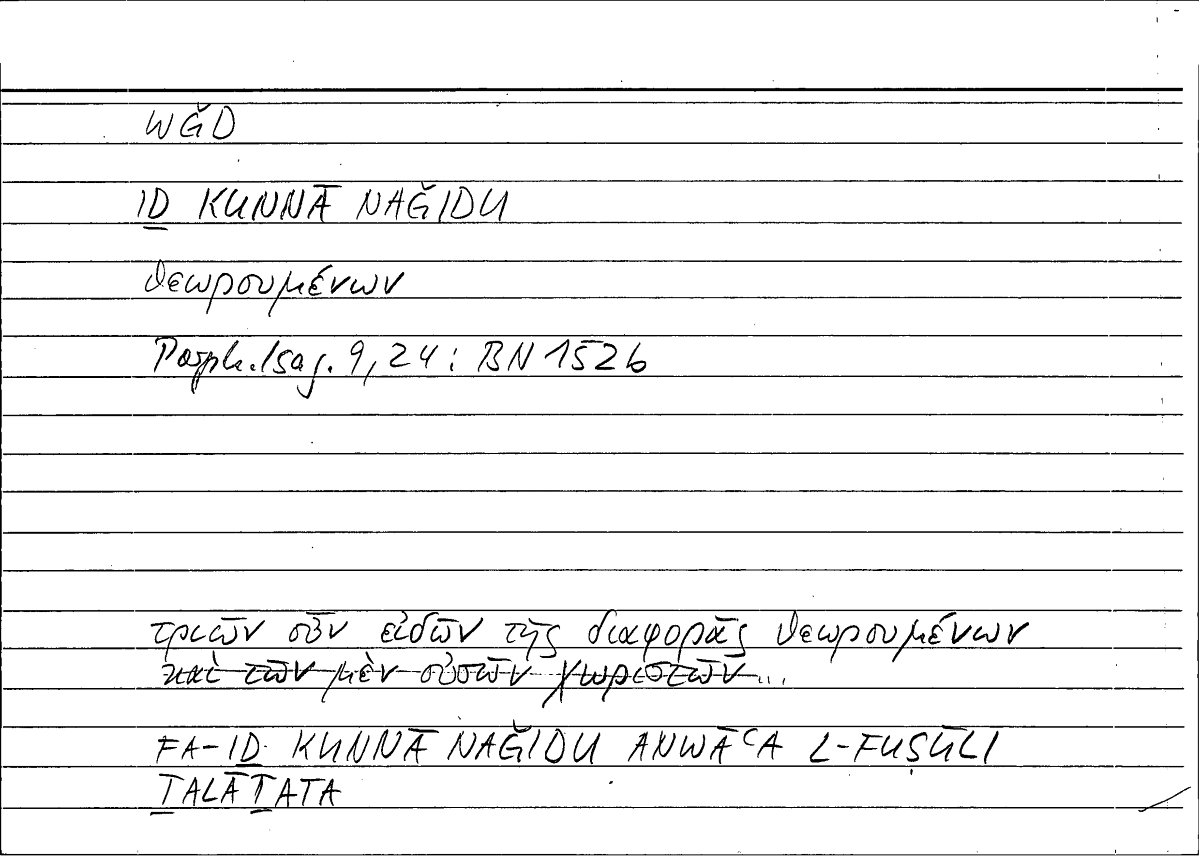 WǦD
IḎ KUNNĀ NAǦIDU
θεωρουμένων
Porph. Isag. 9, 24 : BN 152b
τριῶν οὖν εἰδῶν τῆς διαφορᾶς θεωρουμένων
καὶ τῶν μὲν οὐσῶν χωριστῶν...
FA-IḎ KUNNĀ NAǦIDU ANWĀʿA L-FUṢŪLI
ṮALĀṮATA